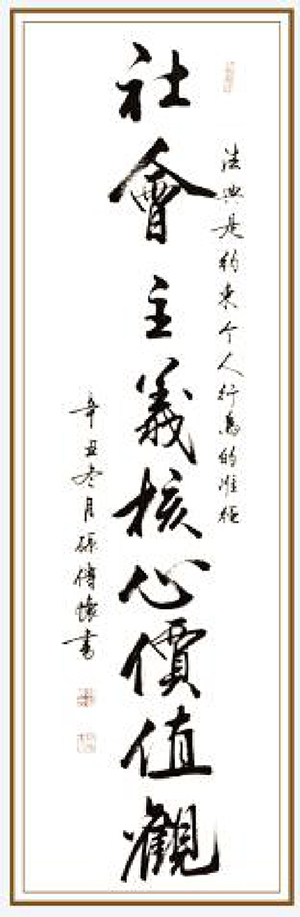 法典是約束个人行為的准繩
社會主義核心價值觀
辛丑冬月孫傳懷書